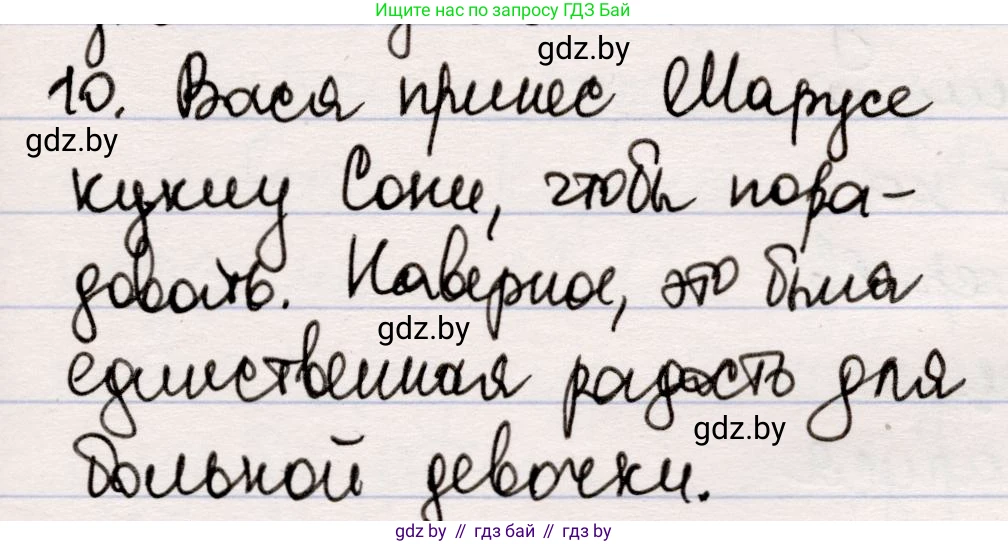 Ищите нас по запросу ГДЗ Бай
gdz.by
10. Вася принес Марусе
gdz.by
куклу Сони, чтобы пора-
довать. Наверное, это была
gdz.by
единственная радость для
gdz.by
больной девочки.
gdz.by // гдз бай // gdz.by